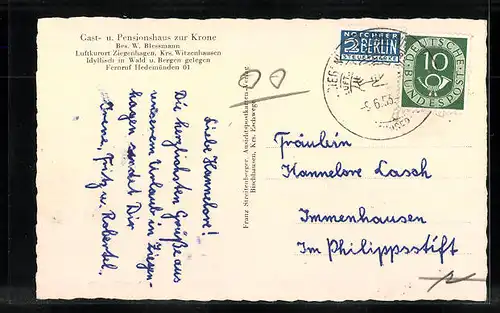 Gast- u. Pensionshaus zur Krone
Bes. W. Blessmann
Luftkurort Ziegenhagen, Krs. Witzenhausen
Idyllisch in Wald u. Bergen gelegen
Fernruf Hedemünden 01
Liebe Hannelore!
Die herzlichsten Grüße aus
unserem Urlaub in Ziegen-
hagen sendet Dir
Irene, Fritz u. Robertel.
Franz Streitenberger, Ansichtspostkarten-Verlag
Bischhausen, Krs. Eschwege
NOTOPFER
2 BERLIN
STEUERMARKE
DEUTSCHE BUNDESPOST
10
Fräulein
Hannelore Lasch
Immenhausen
Im Philippsstift